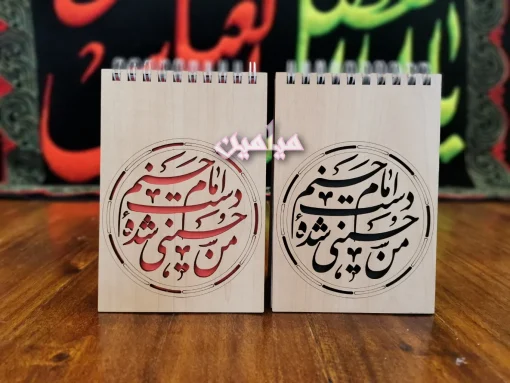 میامین
من حسینی شدهٔ
دست
امام حسنم
من حسینی شدهٔ
دست
امام حسنم